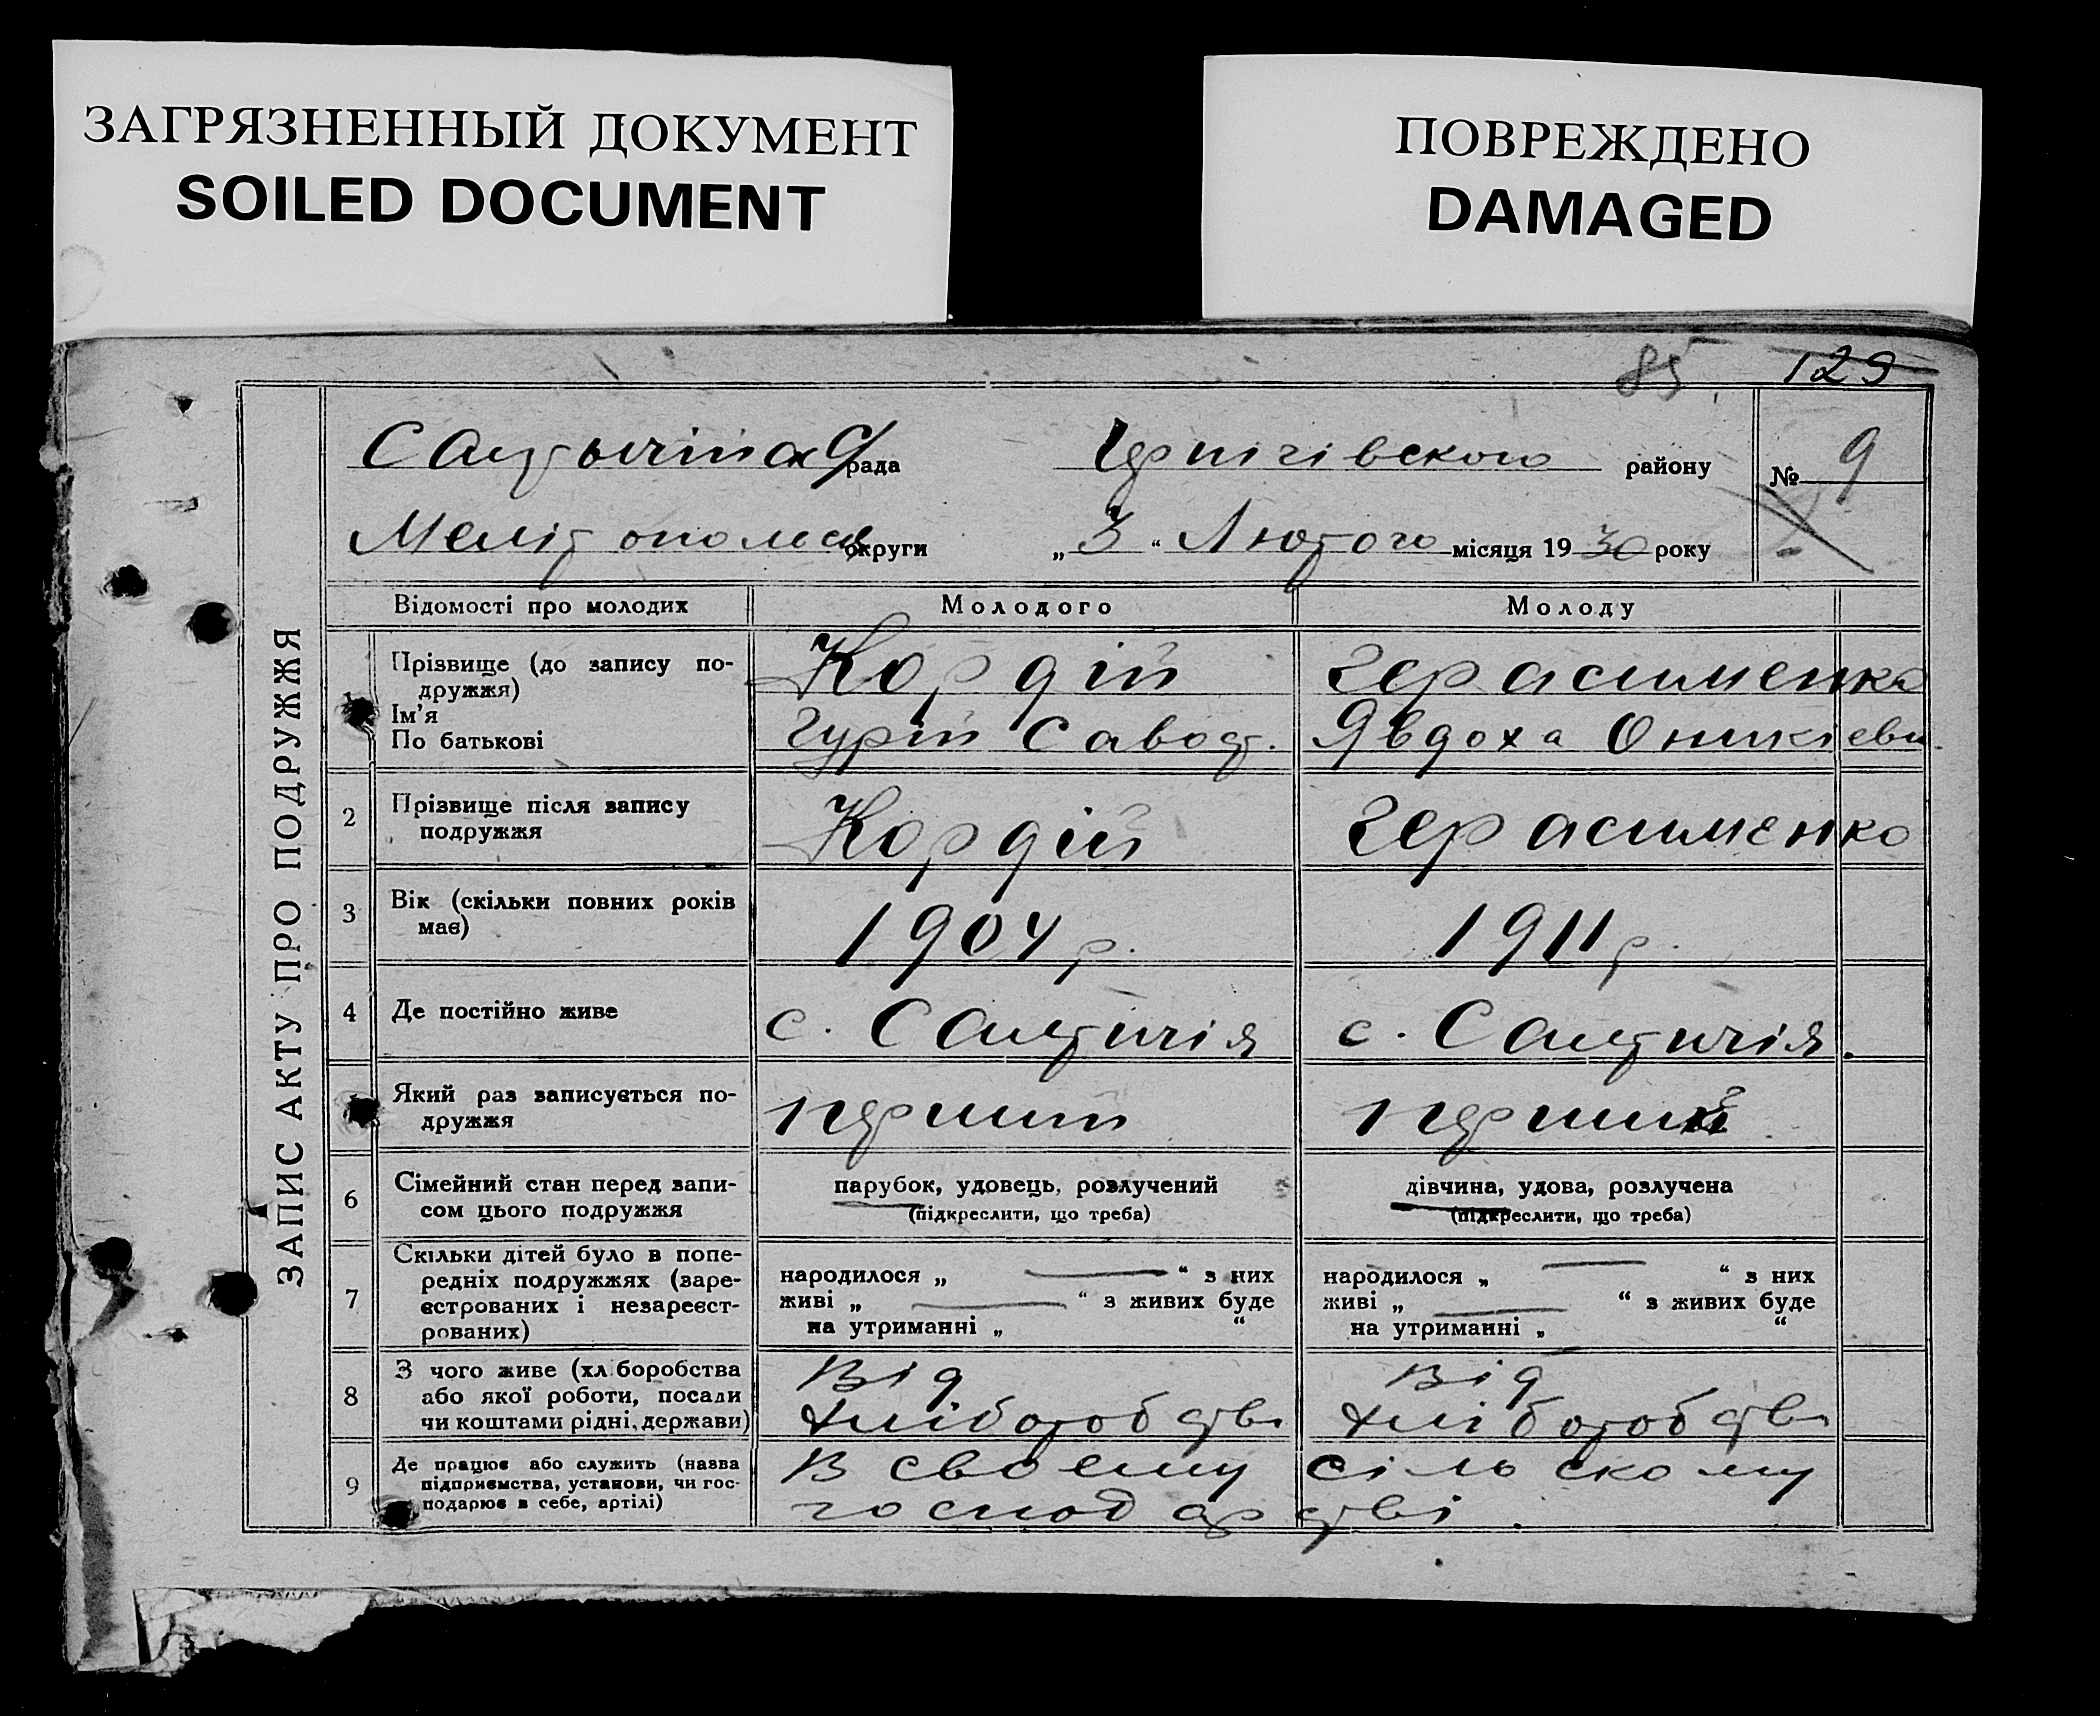 ЗАГРЯЗНЕННЫЙ ДОКУМЕНТ
SOILED DOCUMENT
ПОВРЕЖДЕНО
DAMAGED
85 129
рада Чернігівського району № 9
Мелітопольск округи „ 3 “ Лютого місяця 19 30 року
ЗАПИС АКТУ ПРО ПОДРУЖЖЯ
Відомості про молодих Молодого Молоду
1 Прізвище (до запису по- Кордій Герасименко
дружжя)
Ім'я
По батькові Гурій Савов. Явдоха Оникіевн.
2 Прізвище після запису Кордій Герасименко
подружжя
3 Вік (скільки повних років 1904 р. 1911 р.
має)
4 Де постійно живе с. Салтичія с. Салтичія.
Який раз записується по- перший перший
дружжя
6 Сімейний стан перед запи- парубок, удовець, розлучений дівчина, удова, розлучена
сом цього подружжя (підкреслити, що треба) (підкреслити, що треба)
7 Скільки дітей було в попе- народилося „ — “ з них народилося „ — “ з них
редніх подружжях (заре- живі „ — “ з живих буде живі „ — “ з живих буде
єстрованих і незареєст- на утриманні „ “ на утриманні „ “
рованих)
8 З чого живе (хліборобства Від Від
або якої роботи, посади хліборобств хліборобств
чи коштами рідні, держави)
9 Де працює або служить (назва В своєму сільскому
підприємства, установи, чи гос- господарстві.
подарює в себе, артілі)